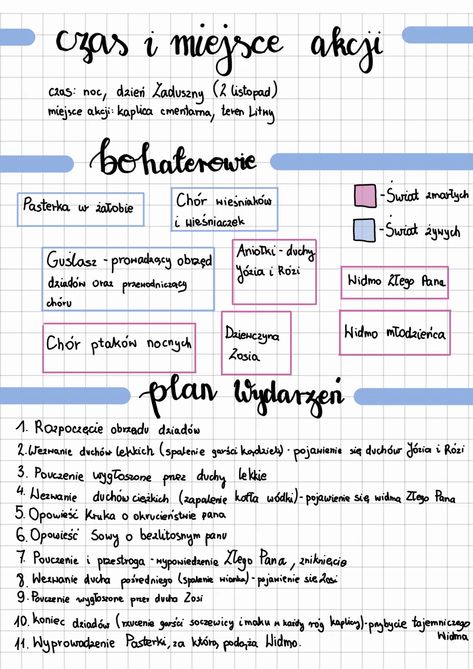 czas i miejsce akcji
czas: noc, dzień Zaduszny (2 listopad)
miejsce akcji: kaplica cmentarna, teren Litwy
bohaterowie
Pasterka w żałobie
Chór wieśniaków
i wieśniaczek
-Świat zmarłych
-Świat żywych
Guślarz - prowadzący obrzęd
dziadów oraz przewodniczący
chóru
Aniołki - duchy
Józia i Rózi
Widmo Złego Pana
Chór ptaków nocnych
Dziewczyna
Zosia
Widmo młodzieńca
plan wydarzeń
1. Rozpoczęcie obrzędu dziadów
2. Wezwanie duchów lekkich (spalenie garści kądzieli) - pojawienie się duchów Józia i Rózi
3. Pouczenie wygłoszone przez duchy lekkie
4. Wezwanie duchów ciężkich (zapalenie kotła wódki) - pojawienie się widma Złego Pana
5. Opowieść Kruka o okrucieństwie pana
6. Opowieść Sowy o bezlitosnym panu
7. Pouczenie i przestroga - wypowiedzenie Złego Pana, zniknięcie
8. Wezwanie ducha pośredniego (spalenie wianka) - pojawienie się Zosi
9. Pouczenie wygłoszone przez ducha Zosi
10. koniec dziadów (rzucenie garści soczewicy i maku w każdy róg kaplicy) - przybycie tajemniczego
Widma
11. Wyprowadzenie Pasterki, za którą podąża Widmo.